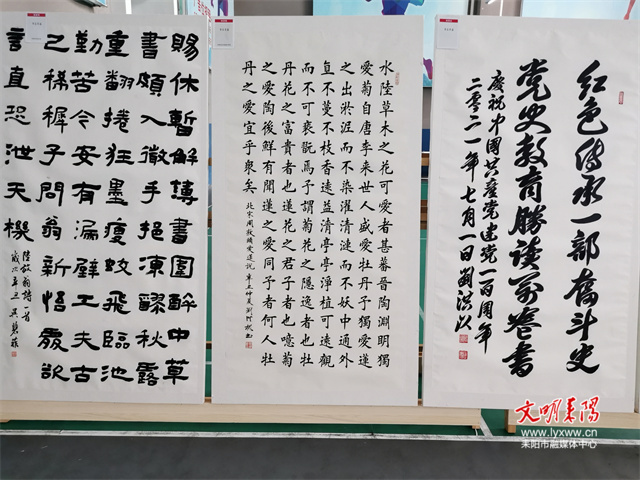 红色传承一部奮斗史
党史教育勝读萬卷書
慶祝中国共産党建党一百周年
二零二一年七月一日劉洪以
水陸草木之花可愛者甚蕃晉陶淵明獨
愛菊自唐李来世人盛愛牡丹予獨愛蓮
之出淤泥而不染濯清漣而不妖中通外
直不蔓不枝香遠益清亭亭淨植可遠觀
而不可褻翫焉予謂菊花之隱逸者也牡
丹花之富貴者也蓮花之君子者也噫菊
之愛陶後鮮有聞蓮之愛同予者何人牡
丹之愛宜乎衆矣 北宋周敦頤愛蓮説 辛丑仲夏
賜休暫解簿書圍醉中草
書頗入微手挹凍醪秋露
重翻捲狂墨瘦蛟飛臨池
勤苦今安有漏壁工夫古
已稀穉子問翁新悟處欲
言直恐泄天機
陸放翁詩一首
歲次辛丑
文明耒陽
www.lyxww.cn
耒阳市融媒体中心